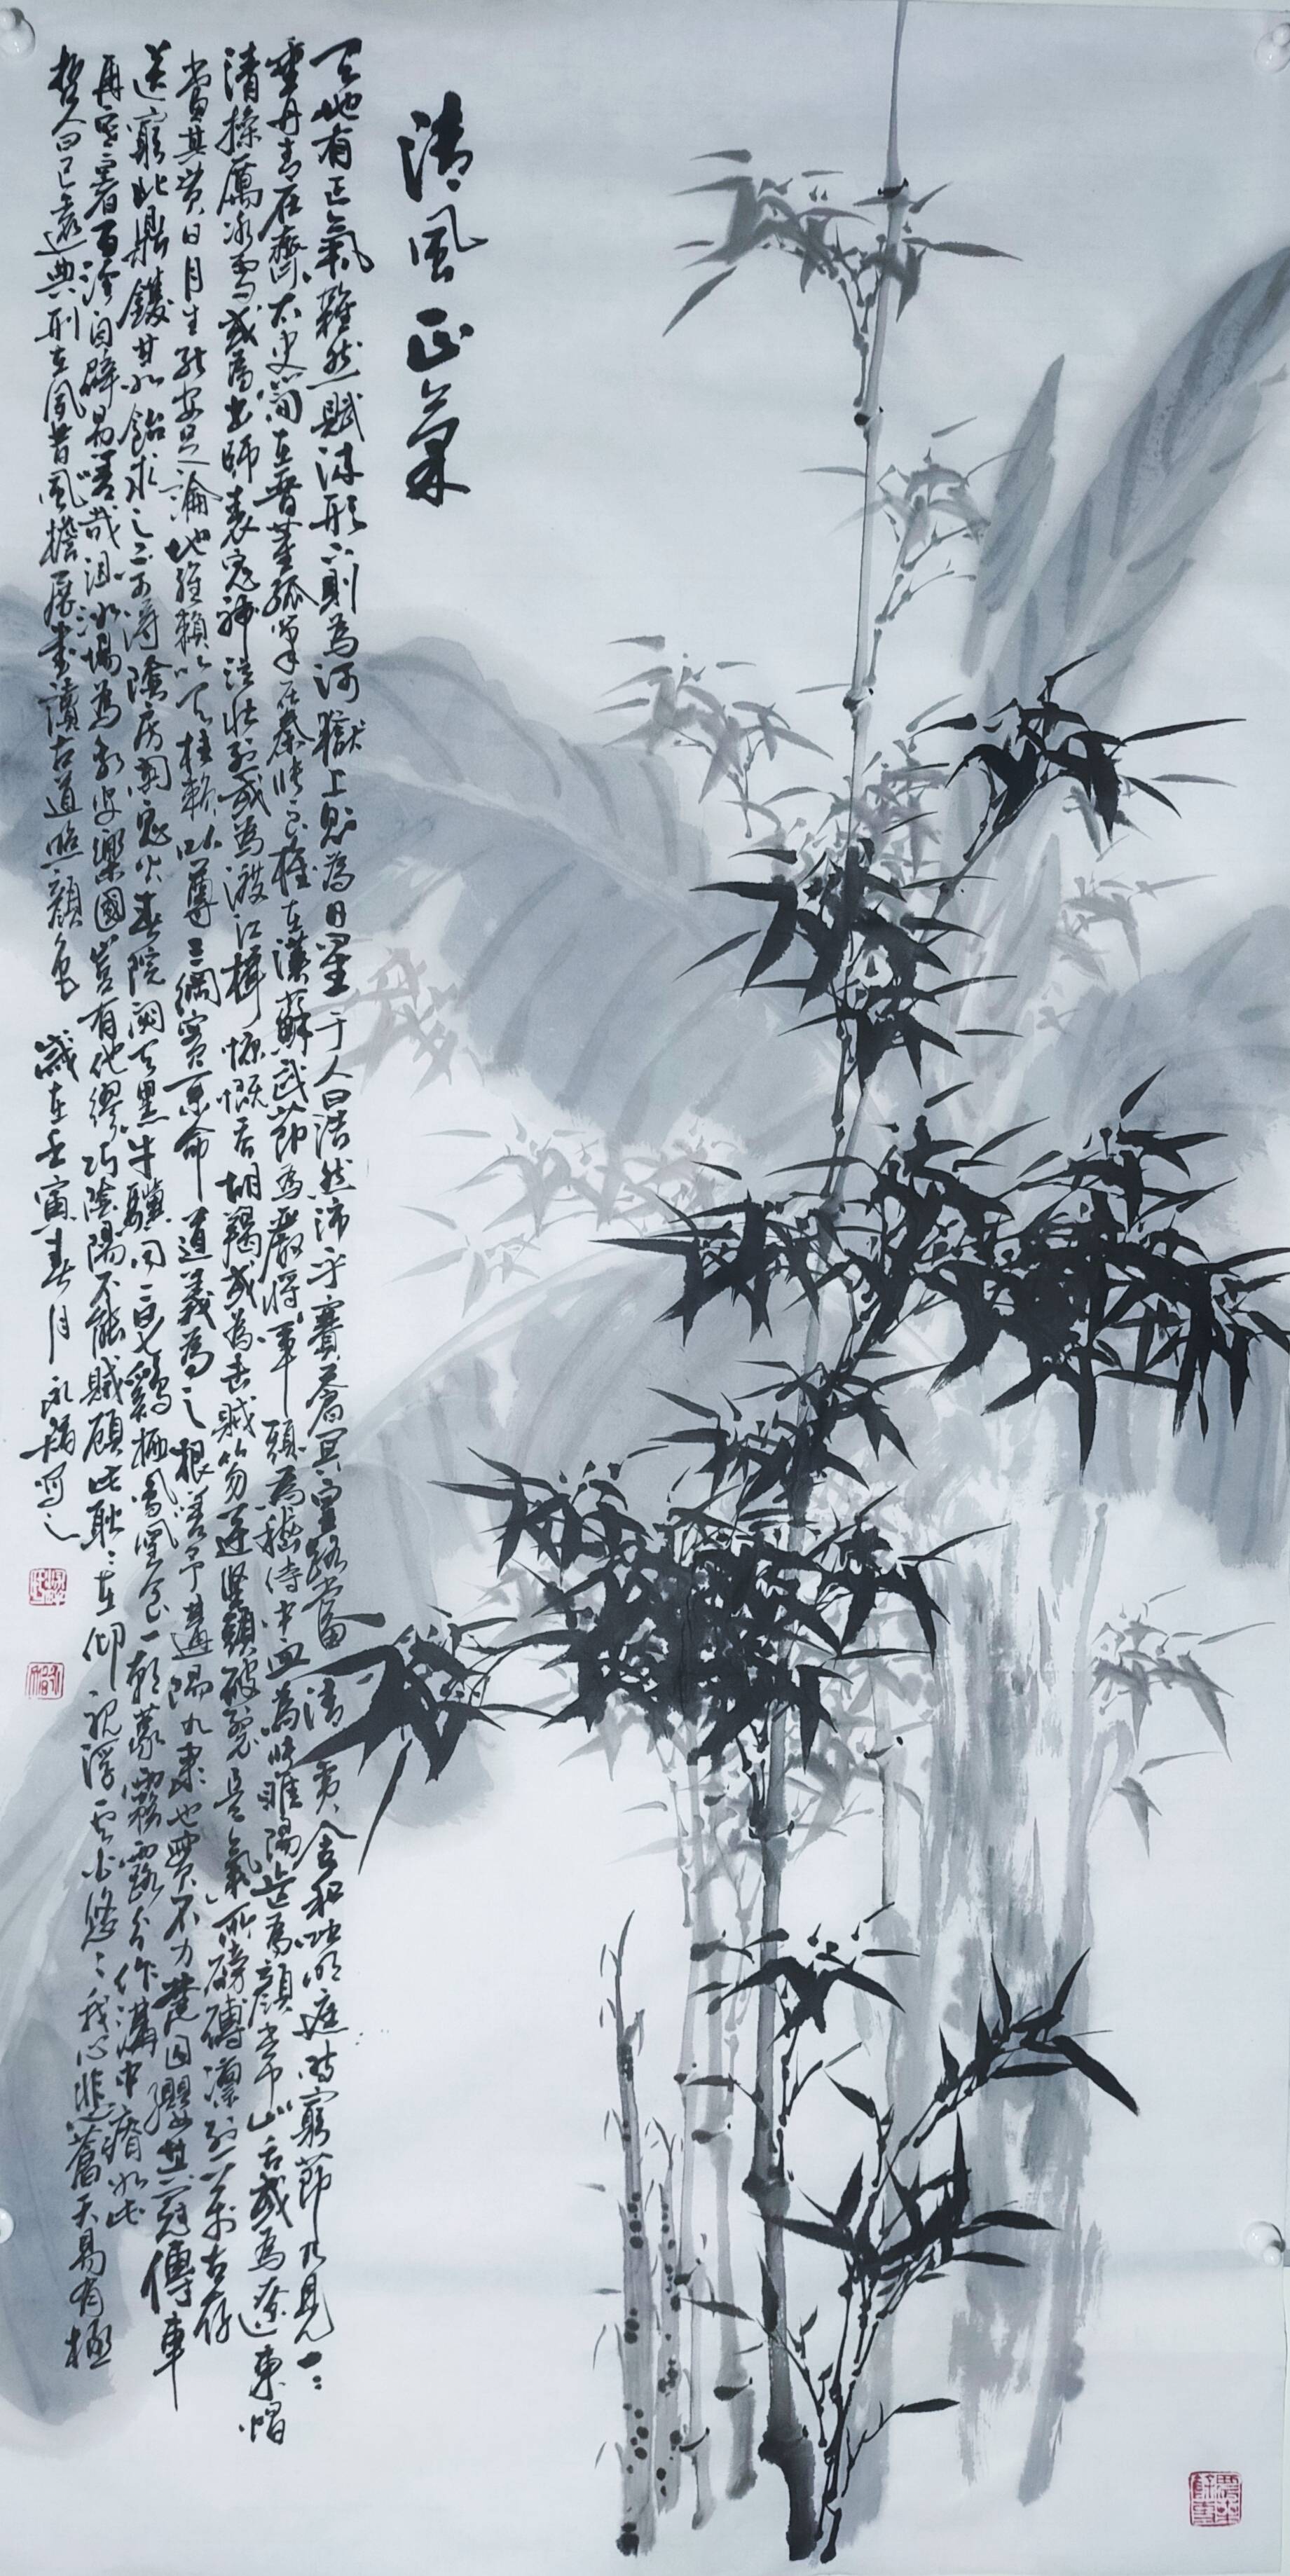 清風正氣
天地有正氣雜然賦流形下則為河嶽上則為日星于人曰浩然沛乎塞蒼冥皇路當清夷含和吐明庭時窮節乃見一一
垂丹青在齊太史簡在晉董狐筆在秦張良椎在漢蘇武節為嚴將軍頭為嵇侍中血為張睢陽齒為顏常山舌或為遼東帽
清操厲冰雪或為出師表鬼神泣壯烈或為渡江楫慷慨吞胡羯或為擊賊笏逆豎頭破裂是氣所磅礴凜烈萬古存
當其貫日月生死安足論地維賴以天柱賴以尊三綱實系命道義為之根嗟予遘陽九隸也實不力楚囚纓其冠傳車
送窮北鼎鑊甘如飴求之不可得陰房闃鬼火春院閟天黑牛驥同一皂雞栖鳳凰食一朝蒙霧露分作溝中瘠如此
再寒暑百沴自辟易嗟哉沮洳場為我安樂國豈有他繆巧陰陽不能賊顧此耿耿在仰視浮雲白悠悠我心悲蒼天曷有極
哲人日已遠典刑在夙昔風檐展書讀古道照顏色 歲在壬寅春月 永寫之